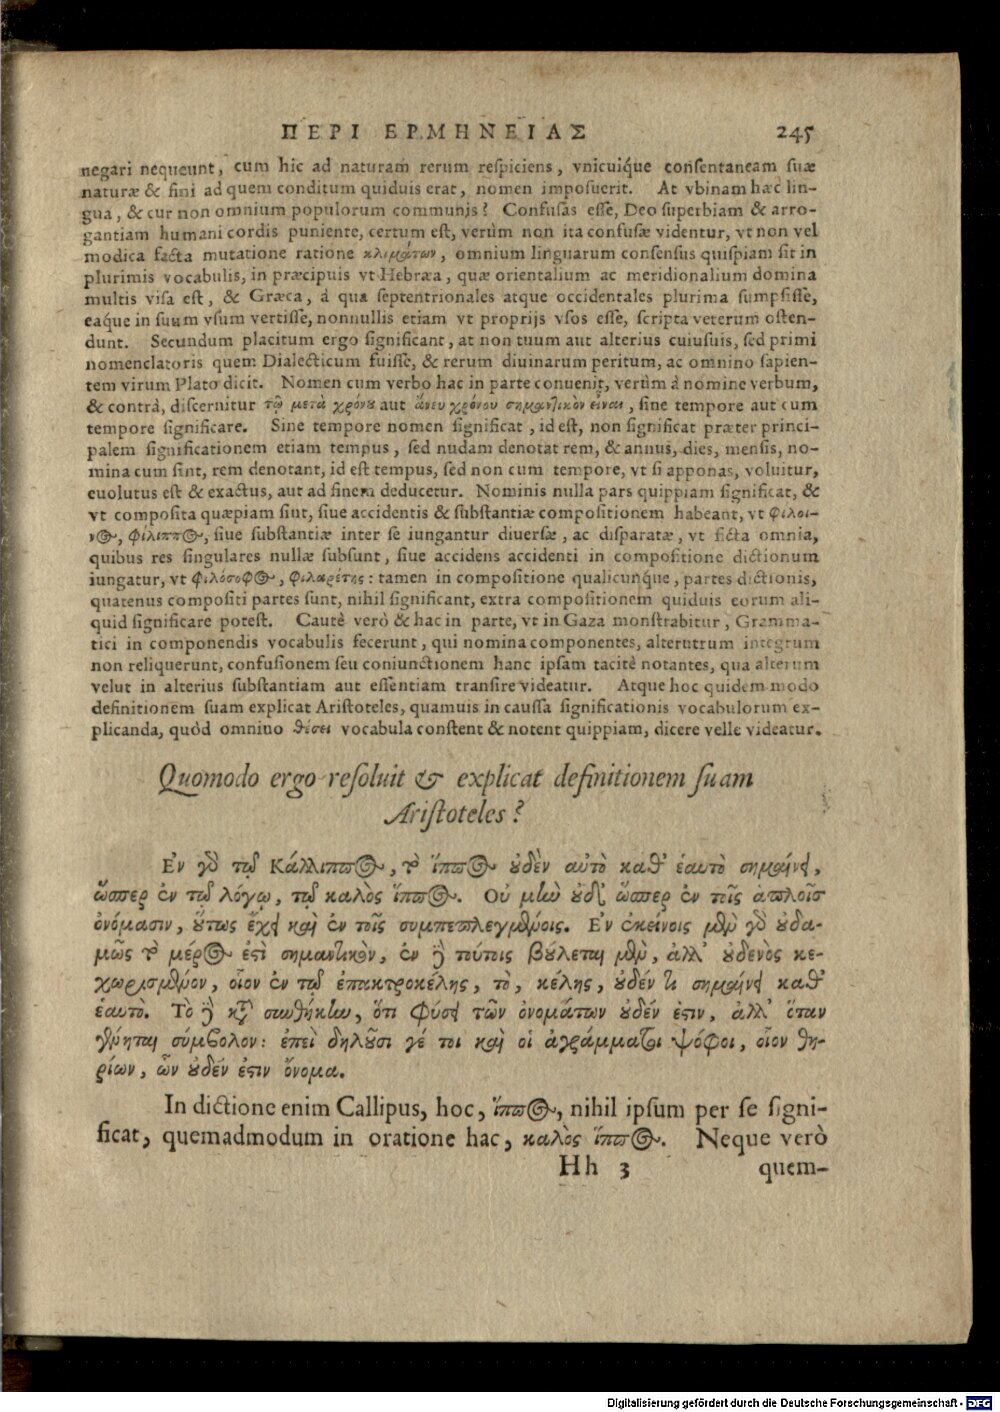 ΠΕΡΙ ΕΡΜΗΝΕΙΑΣ 245
negari nequeunt, cum hic ad naturam rerum reſpiciens, vnicuíque conſentaneam ſuæ
naturæ & fini ad quem conditum quiduis erat, nomen impoſuerit. At vbinam hæc lin-
gua, & cur non omnium populorum communis? Confuſas eſſe, Deo ſuperbiam & arro-
gantiam humani cordis puniente, certum eſt, verùm non ita confuſæ videntur, vt non vel
modica facta mutatione ratione κλιμάτων, omnium linguarum conſenſus quiſpiam ſit in
plurimis vocabulis, in præcipuis vt Hebræa, quæ orientalium ac meridionalium domina
multis viſa eſt, & Græca, à qua ſeptentrionales atque occidentales plurima ſumpſiſſe,
eaque in ſuum vſum vertiſſe, nonnullis etiam vt proprijs vſos eſſe, ſcripta veterum oſten-
dunt. Secundum placitum ergo ſignificant, at non tuum aut alterius cuiuſuis, ſed primi
nomenclatoris quem Dialecticum fuiſſe, & rerum diuinarum peritum, ac omnino ſapien-
tem virum Plato dicit. Nomen cum verbo hac in parte conuenit, verùm à nomine verbum,
& contrà, diſcernitur τῷ μετὰ χρόνου aut ἄνευ χρόνου σημαντικὸν εἶναι, ſine tempore aut cum
tempore ſignificare. Sine tempore nomen ſignificat, id eſt, non ſignificat præter princi-
palem ſignificationem etiam tempus, ſed nudam denotat rem, & annus, dies, menſis, no-
mina cum ſint, rem denotant, id eſt tempus, ſed non cum tempore, vt ſi apponas, voluitur,
euolutus eſt & exactus, aut ad finem deducetur. Nominis nulla pars quippiam ſignificat, &
vt compoſita quæpiam ſint, ſiue accidentis & ſubſtantiæ compoſitionem habeant, vt φίλοι-
νος, φίλιππος, ſiue ſubſtantiæ inter ſe iungantur diuerſæ, ac diſparatæ, vt ficta omnia,
quibus res ſingulares nullæ ſubſunt, ſiue accidens accidenti in compoſitione dictionum
iungatur, vt φιλόσοφος, φιλαρέτης: tamen in compoſitione qualicunque, partes dictionis,
quatenus compoſiti partes ſunt, nihil ſignificant, extra compoſitionem quiduis eorum ali-
quid ſignificare poteſt. Cautè verò & hac in parte, vt in Gaza monſtrabitur, Gramma-
tici in componendis vocabulis fecerunt, qui nomina componentes, alterutrum integrum
non reliquerunt, confuſionem ſeu coniunctionem hanc ipſam tacitè notantes, qua alterum
velut in alterius ſubſtantiam aut eſſentiam tranſire videatur. Atque hoc quidem modo
definitionem ſuam explicat Ariſtoteles, quamuis in cauſſa ſignificationis vocabulorum ex-
plicanda, quòd omnino θέσει vocabula conſtent & notent quippiam, dicere velle videatur.
Quomodo ergo reſoluit & explicat definitionem ſuam
Ariſtoteles?
Ἐν γὰρ τῷ Κάλλιππος, τὸ ἵππος οὐδὲν αὐτὸ καθ' ἑαυτὸ σημαίνει,
ὥσπερ ἐν τῷ λόγῳ, τῷ καλὸς ἵππος. Οὐ μὴν οὐδ' ὥσπερ ἐν τοῖς ἁπλοῖς
ὀνόμασιν, οὕτως ἔχει καὶ ἐν τοῖς συμπεπλεγμένοις. Ἐν ἐκείνοις μὲν γὰρ οὐδα-
μῶς τὸ μέρος ἐστὶ σημαντικὸν, ἐν δὲ τούτοις βούλεται μὲν, ἀλλ' οὐδενὸς κε-
χωρισμένον, οἷον ἐν τῷ ἐπακτροκέλης, τὸ, κέλης, οὐδέν τι σημαίνει καθ'
ἑαυτό. Τὸ δὲ κατὰ συνθήκην, ὅτι φύσει τῶν ὀνομάτων οὐδέν ἐστιν, ἀλλ' ὅταν
γένηται σύμβολον: ἐπεὶ δηλοῦσι γέ τοι καὶ οἱ ἀγράμματοι ψόφοι, οἷον θη-
ρίων, ὧν οὐδέν ἐστιν ὄνομα.
In dictione enim Callipus, hoc, ἵππος, nihil ipſum per ſe ſigni-
ficat, quemadmodum in oratione hac, καλὸς ἵππος. Neque verò
Hh 3 quem-
Digitalisierung gefördert durch die Deutsche Forschungsgemeinschaft - DFG